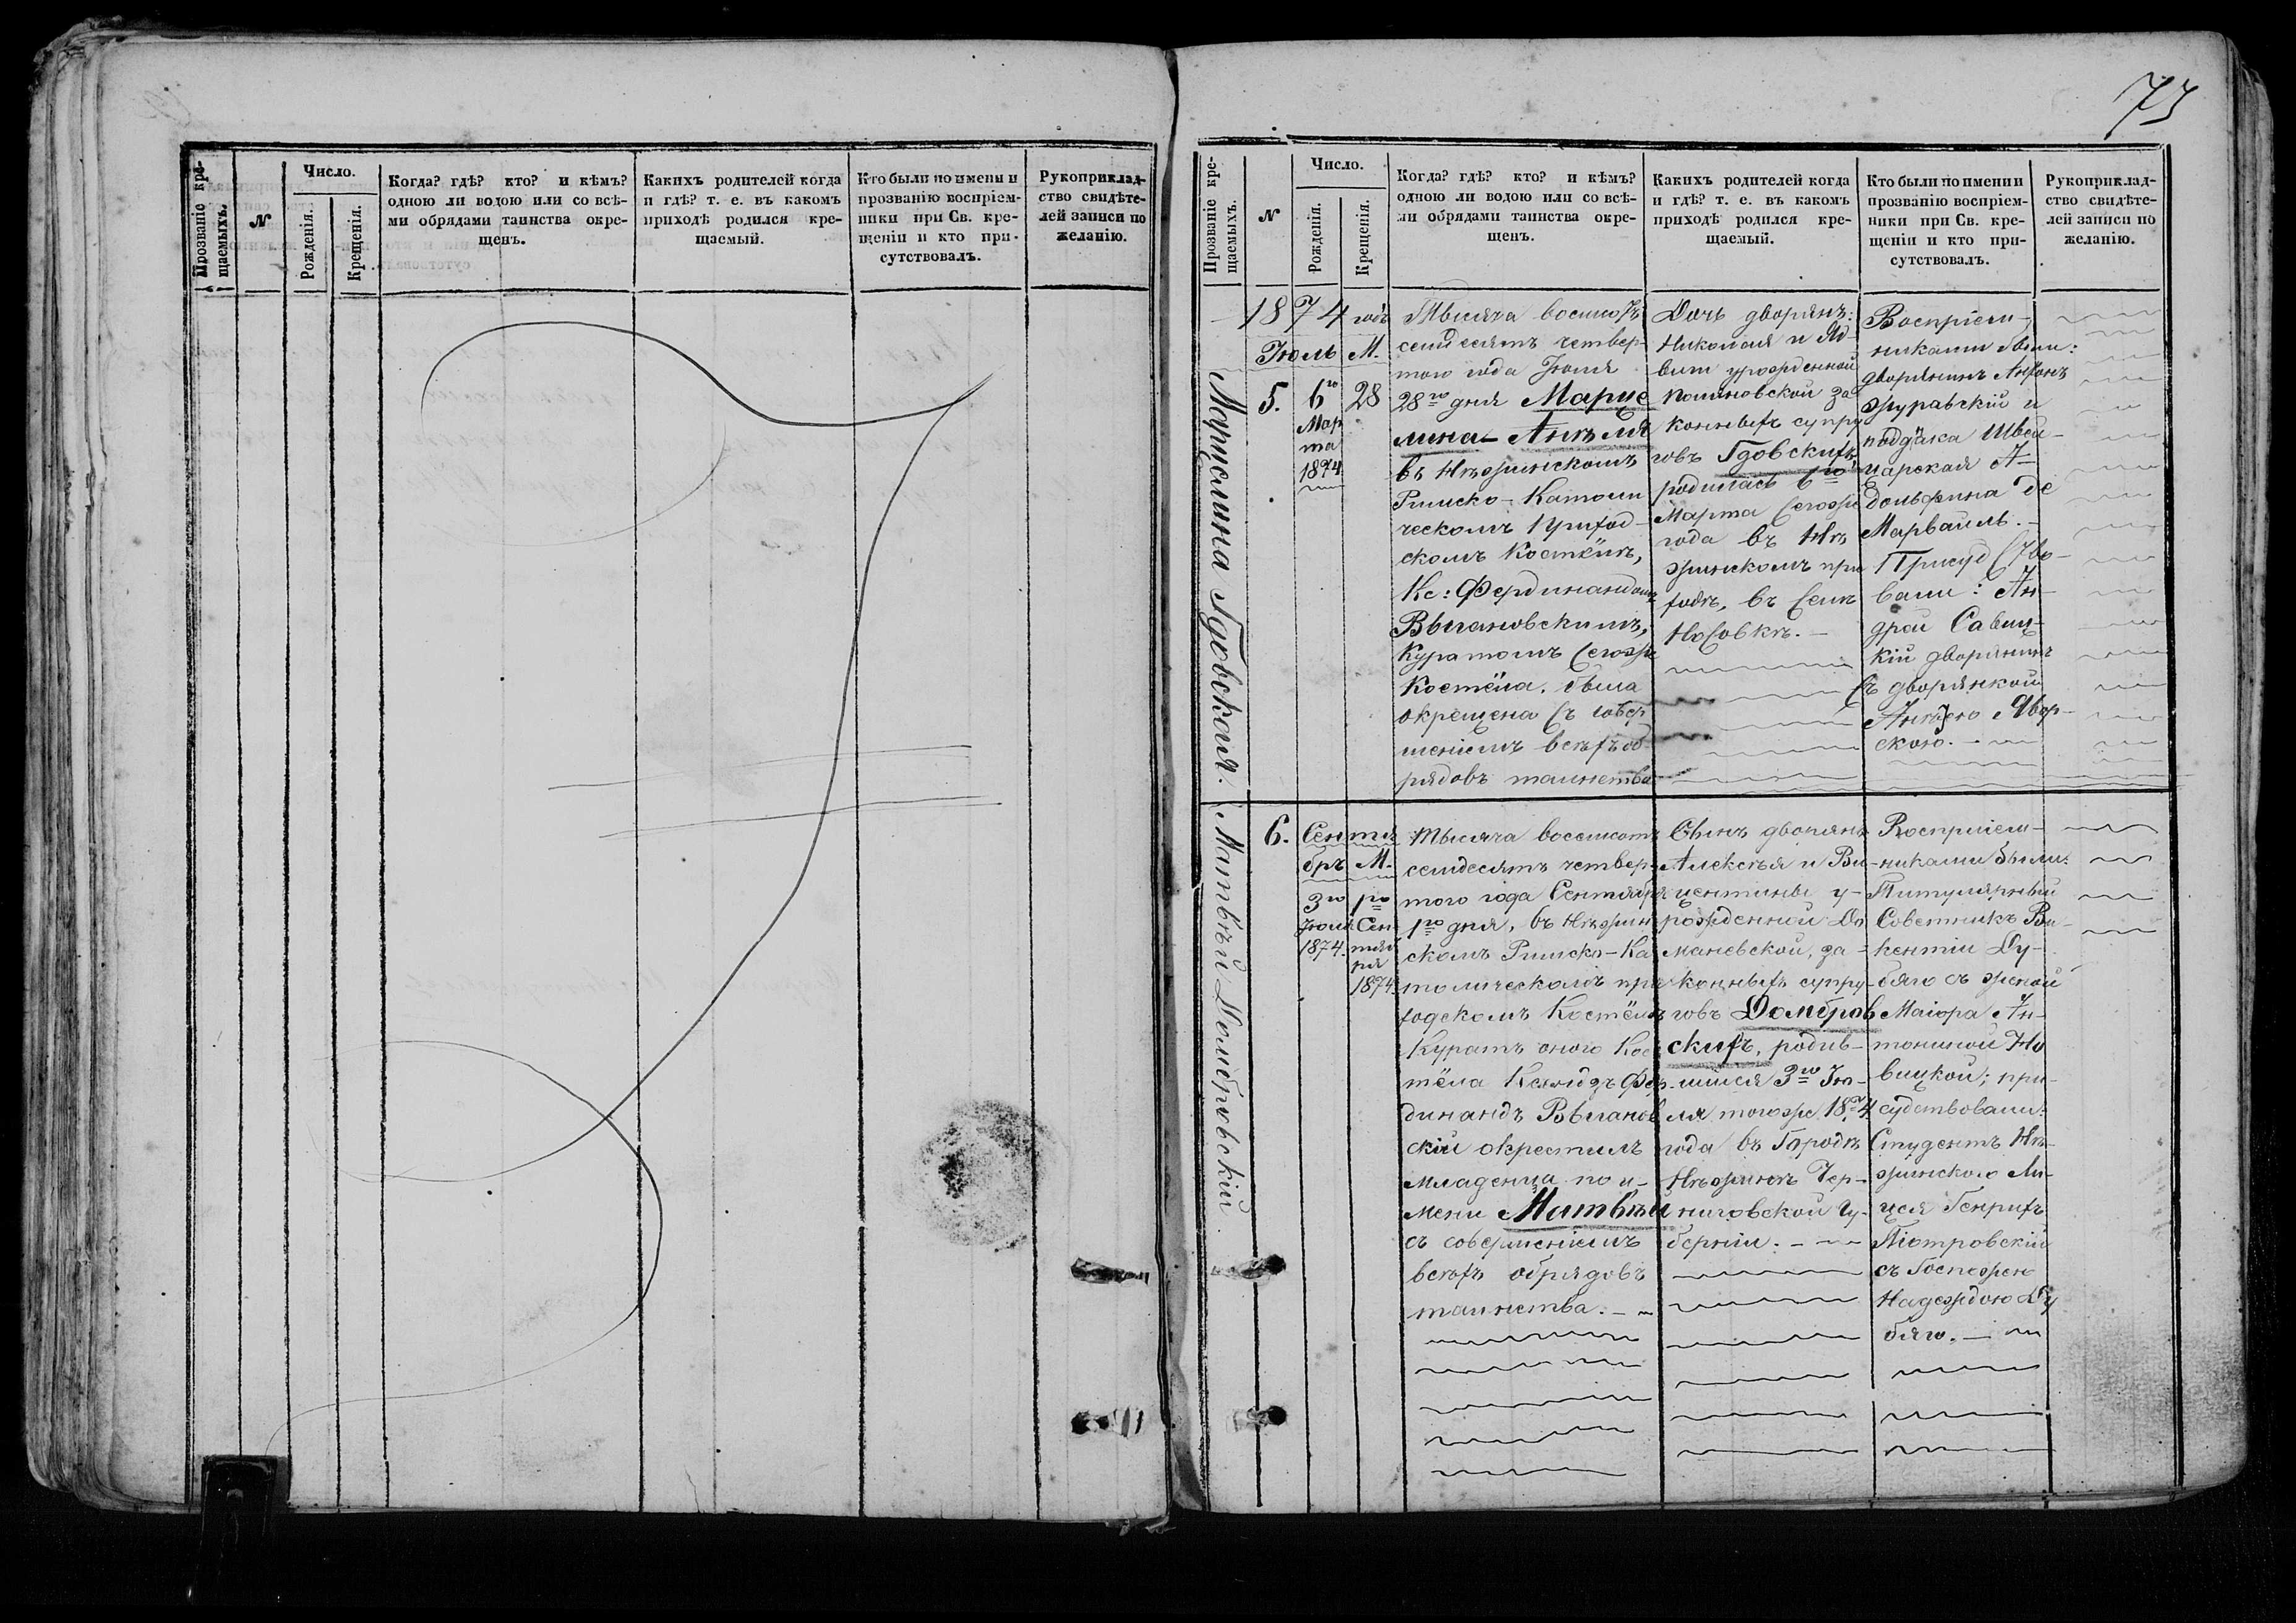 73
Прозваніе кре-
щаемыхъ.
№
Число.
Рожденія.
Крещенія.
Когда? гдѣ? кто? и кѣмъ?
одною ли водою или со всѣ-
ми обрядами таинства окре-
щенъ.
Какихъ родителей когда
и гдѣ? т. е. въ какомъ
приходѣ родился кре-
щаемый.
Кто были по имени и
прозванію воспріем-
ники при Св. кре-
щеніи и кто при-
сутствовалъ.
Рукоприклад-
ство свидѣте-
лей записи по
желанію.
Прозваніе кре-
щаемыхъ.
№
Число.
Рожденія.
Крещенія.
Когда? гдѣ? кто? и кѣмъ?
одною ли водою или со всѣ-
ми обрядами таинства окре-
щенъ.
Какихъ родителей когда
и гдѣ? т. е. въ какомъ
приходѣ родился кре-
щаемый.
Кто были по имени и
прозванію воспріем-
ники при Св. кре-
щеніи и кто при-
сутствовалъ.
Рукоприклад-
ство свидѣте-
лей записи по
желанію.
Марцелина Гдовская.
1874 годъ
Іюль М.
5.
6го
Мар
та
1874
28
Тысяча восемьсотъ
семдесятъ четвер-
того года Іюля
28го дня Марце
лина-Анеля
въ Нѣжинскомъ
Римско-Католи
ческомъ приход-
скомъ Костёлѣ,
Кс: Фердинандомъ
Выгановскимъ,
Куратомъ сегоже
Костёла, была
окрещена съ совер
шеніемъ всѣхъ об-
рядовъ таинства
Дочь дворянъ:
Николая и Яд-
виги урожденной
законныхъ супру
говъ Гдовскихъ,
родилась 6го
Марта сегоже
года въ Нѣ
жинскомъ при
ходѣ, въ селѣ
Носовкѣ.-
Воспріем-
никами были:
дворянинъ Антонъ
Журавскій и
поддана Швей-
царская А-
дольфина де
Марваиль.-
Присудство-
вали: Ан-
дрей Савиц-
кій дворянинъ
съ дворянкой
Анелею Явор-
скою.-
Матвѣй Домбровскій
6.
Сентя
брь М.
3го
Іюля
1874.
1го
Сен
тяб
ря
1874.
Тысяча восемсотъ
семдесятъ четвер-
того года Сентября
1го дня, въ Нѣжин
скомъ Римско-Ка
толическомъ при
ходскомъ Костёлѣ
Куратъ оного Кос
тёла Ксендзъ Фер-
динандъ Выганов
скій окрестилъ
младенца по и-
мени Матвѣй
съ совершеніемъ
всѣхъ обрядовъ
таинства.-
Сынъ дворянъ
Алексѣя и Ви-
центины у-
рожденной До
маневской, за-
конныхъ супру-
говъ Домбров
скихъ, родив-
шійся 3го Ію-
ля тогоже 1874
года въ Городѣ
Нѣжинѣ Чер-
ниговской Гу-
берніи.-
Воспріем-
никами были:
Титулярный
Советникъ Ви-
кентій Ду-
бяго съ женой
Маіора Ан-
тониной Но
вицкой; при-
судствовали:
Студентъ Нѣ-
жинского Ли-
цея Генрихъ
Піотровскій
съ Госпожею
Надеждою Ду
бяго.-